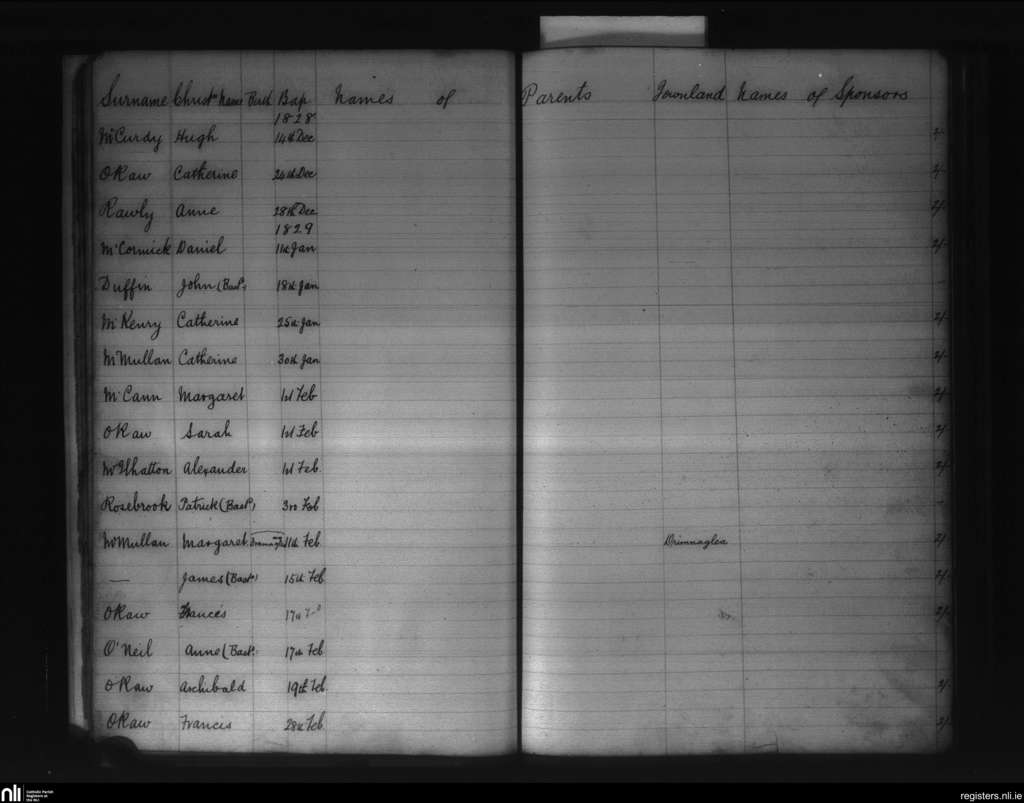 Surname Christn Name Birth Bap Names of Parents Townland Names of Sponsors
1828
McCurdy Hugh 14th Dec 2/-
OKaw Catherine 26th Dec 2/-
Rawly Anne 28th Dec 2/-
1829
McCormick Daniel 11th Jan 2/-
Duffin John (Bast.) 18th Jan -
McKenry Catherine 25th Jan 2/-
McMullan Catherine 30th Jan 2/-
McCann Margaret 1st Feb 2/-
OKaw Sarah 1st Feb 2/-
Alexander 1st Feb 2/-
Rosebrook Patrick (Bast.) 3rd Feb -
McMullan Margaret 11th Feb Drimnaglea 2/-
— James (Bast.) 15th Feb 2/-
OKaw Frances 17th 2/-
O'Neil Anne (Bast. 17th Feb
OKaw Archibald 19th Feb 2/-
OKaw Francis 28th Feb 2/-
nli Catholic Parish Registers at the NLI
registers.nli.ie